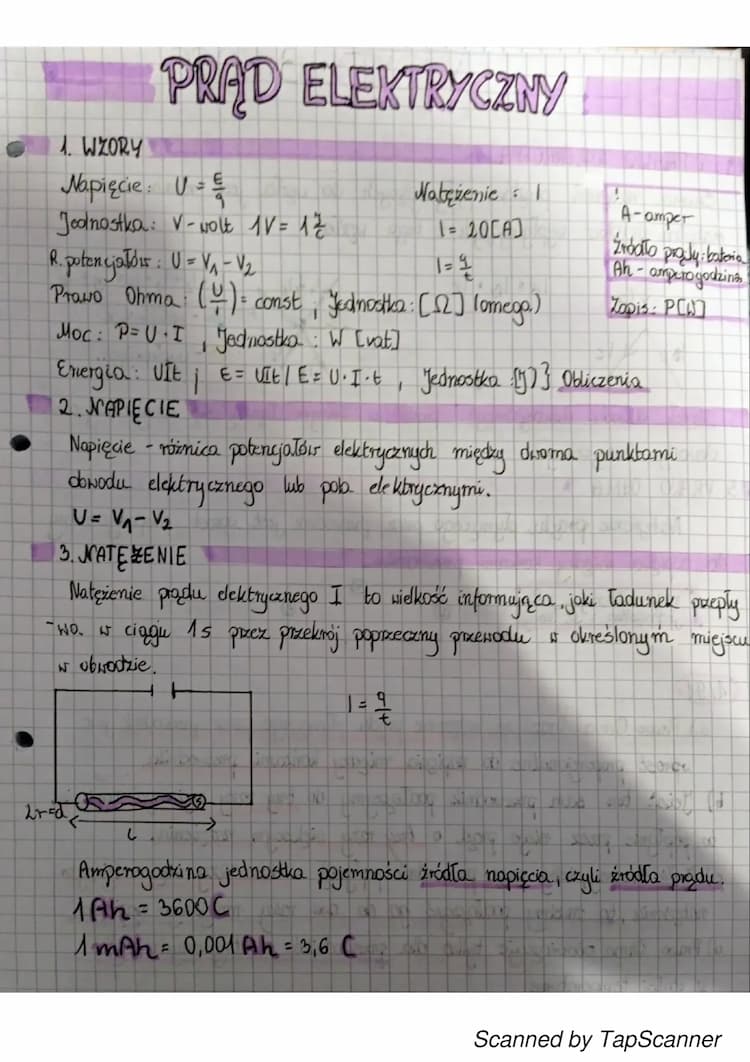 PRĄD ELEKTRYCZNY
1. WZORY
Napięcie: U = E/q
Natężenie : I
Jednostka: V-wolt 1V = 1 J/C
I = 20[A]
R. potencjałów: U = V₁ - V₂
I = q/t
Prawo Ohma: (U/I) = const, Jednostka: [Ω] (omega)
Moc: P = U · I, Jednostka: W [wat]
Energia: UIt; E = UIt / E = U · I · t, Jednostka [J] } Obliczenia
!
A - amper
Źródło prądu: bateria
Ah - amperogodzina
Zapis: P[W]
2. NAPIĘCIE
Napięcie - różnica potencjałów elektrycznych między dwoma punktami
obwodu elektrycznego lub pola elektrycznymi.
U = V₁ - V₂
3. NATĘŻENIE
Natężenie prądu elektrycznego I to wielkość informująca, jaki ładunek przepły
-wa. w ciągu 1s przez przekrój poprzeczny przewodu w określonym miejscu
w obwodzie.
I = q/t
2r=d
L
Amperogodzina jednostka pojemności źródła napięcia, czyli źródła prądu.
1 Ah = 3600 C
1 mAh = 0,001 Ah = 3,6 C
Scanned by TapScanner